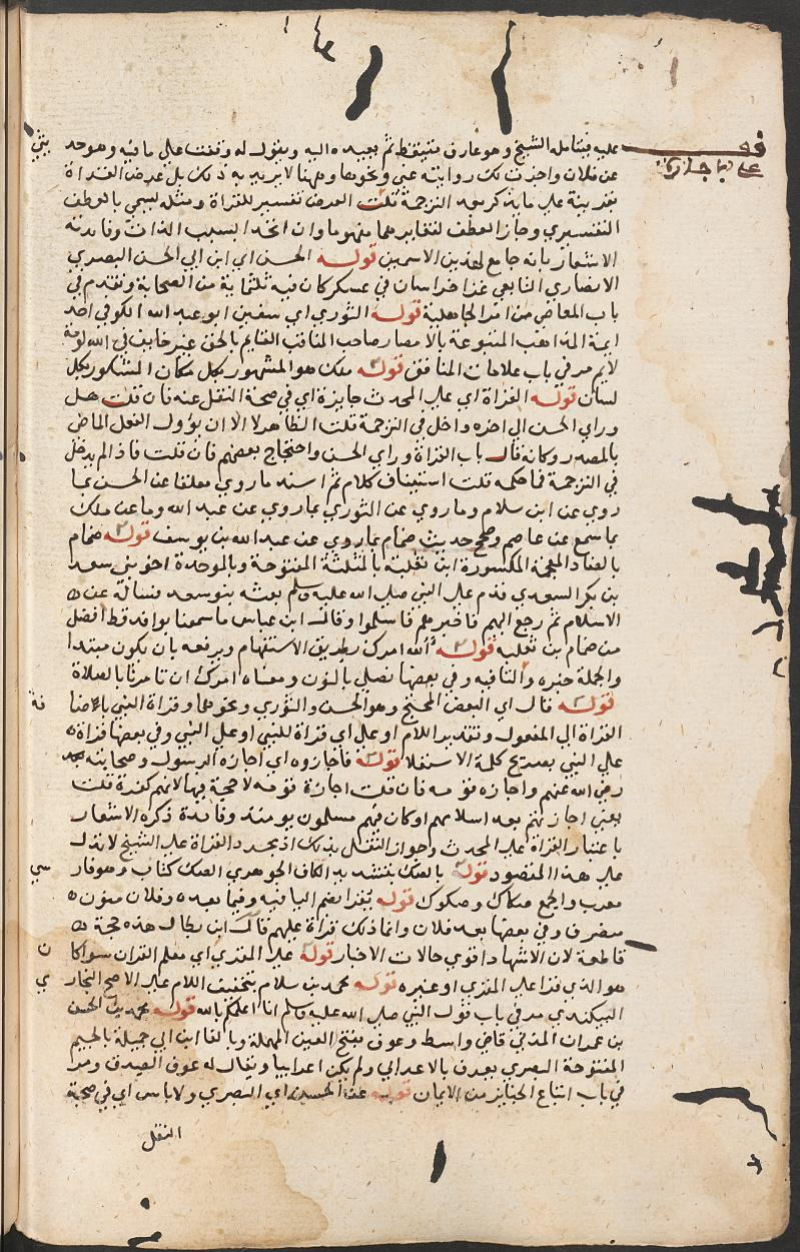 عليه فيتأمله الشيخ وهو عارف متيقظ ثم يعيده اليه ويقول له وقفت على ما فيه وهو حديثي
عن فلان واجزت لك روايته عني ونحوها وههنا لا يريد به ذلك بل عرض القراة
بقرينة ما يذكر بعد الترجمة قلت العرض تفسير للقراة ومثله يسمي بالعطف
التفسيري وجاز العطف لتغايرهما مفهوما وان اتحدا بسبب الذات وفايدته
الاشعار بانه جامع لهذين الاسمين قوله الحسن اي ابن ابي الحسن البصري
الانصاري التابعي غزا خراسان في عسكر كان فيه ثلثماية من الصحابة وتقدم في
باب المعاصي من امر الجاهلية قوله الثوري اي سفين ابو عبد الله الكوفي احد
ايمة المذاهب المتبوعة بالامصار صاحب المناقب القايم بالحق غير خايف في الله لومة
لايم مر في باب علامات المنافق قوله ملك هو المشهور بكل مكان المشكور بكل
لسان قوله القراة اي على المحدث جايزة اي في صحة النقل عنه فان قلت هل
وراي الحسن الي اخره داخل في الترجمة قلت الظاهر لا الا ان يؤول الفعل الماضي
بالمصدر وكانه قال باب القراة وراي الحسن واحتجاج بعضهم فان قلت فاذا لم يدخل
في الترجمة فما حكمه قلت استيناف كلام ثم اسند ما روي معلقا عن الحسن بما
روي عن ابن سلام وما روي عن الثوري بما روي عن عبد الله وما عن ملك
بما سمع عن عاصم وصحح حديث ضمام بما روي عن عبد الله بن يوسف قوله ضمام
بالضاد المعجمة المكسورة ابن ثعلبة بالمثلثة المفتوحة وبالموحدة اخو بني سعد
بن بكر السعدي قدم على النبي صلى الله عليه وسلم بعثه بنو سعد فساله عن
الاسلام ثم رجع اليهم فاخبرهم فاسلموا وقال ابن عباس ما سمعنا بوافد قط افضل
من ضمام بن ثعلبه قوله آلله امرك بطريق الاستفهام ويرفعه بان يكون مبتدا
والجملة خبره والثانيه وفي بعضها نصلي بالنون ومعناه امرك ان تامرنا بالصلاة
قوله قال اي البعض المحتج وهو الحسن والثوري ونحوهما وقراة النبي باضافة
القراة الي المفعول وتقدير اللام او على اي قراة للنبي او على النبي وفي بعضها قراة
على النبي بصريح كلمة الاستعلا قوله فاجازوه اي اجازه الرسول وصحابته
رضي الله عنهم واجازه قومه فان قلت اجازة قومه لا حجية فيها لانهم كفرة قلت
يعني اجازتهم بعد اسلامهم او كان فيهم مسلمون يومئذ وفايدة ذكره الاشعار
باعتبار القراة على المحدث وجواز النقل بذلك اذ مجرد القراة على الشيخ لا تدل
على هذا المقصود قوله بالصك بتشديد الكاف الجوهري الصك كتاب وهو فارسي
معرب والجمع صكاك وصكوك قوله يقرا بضم اليا فيه وفيما بعده وفلان منون
منصرف وفي بعضها بعد فلان وانما ذلك قراة عليهم قال ابن بطال هذه حجة
قاطعة لان الاشهاد اقوي حالات الاخبار قوله على المقري اي معلم القران سوا كان
هو الذي قرا على المقري او غيره قوله محمد بن سلام بتخفيف اللام على الاصح البخاري
البيكندي مر في باب قول النبي صلى الله عليه وسلم انا اعلمكم بالله قوله محمد بن الحسن
بن عمران المدني قاضي واسط وعوف بفتح العين المهملة وبالفا ابن ابي جميلة بالجيم
المفتوحة البصري يعرف بالاعرابي ولم يكن اعرابيا ويقال له عوف الصدق ومرا
في باب اتباع الجنايز من الايمان قوله عن الحسن اي البصري ولا باس اي في صحة
النقل